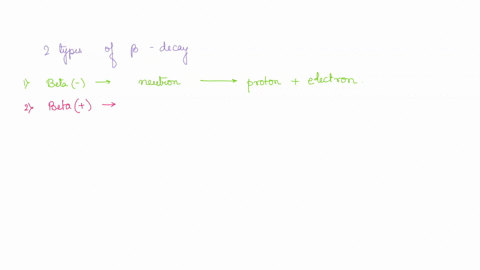 2 types of β - decay
1) Beta (-) → neutron → proton + electron.
2) Beta (+) →